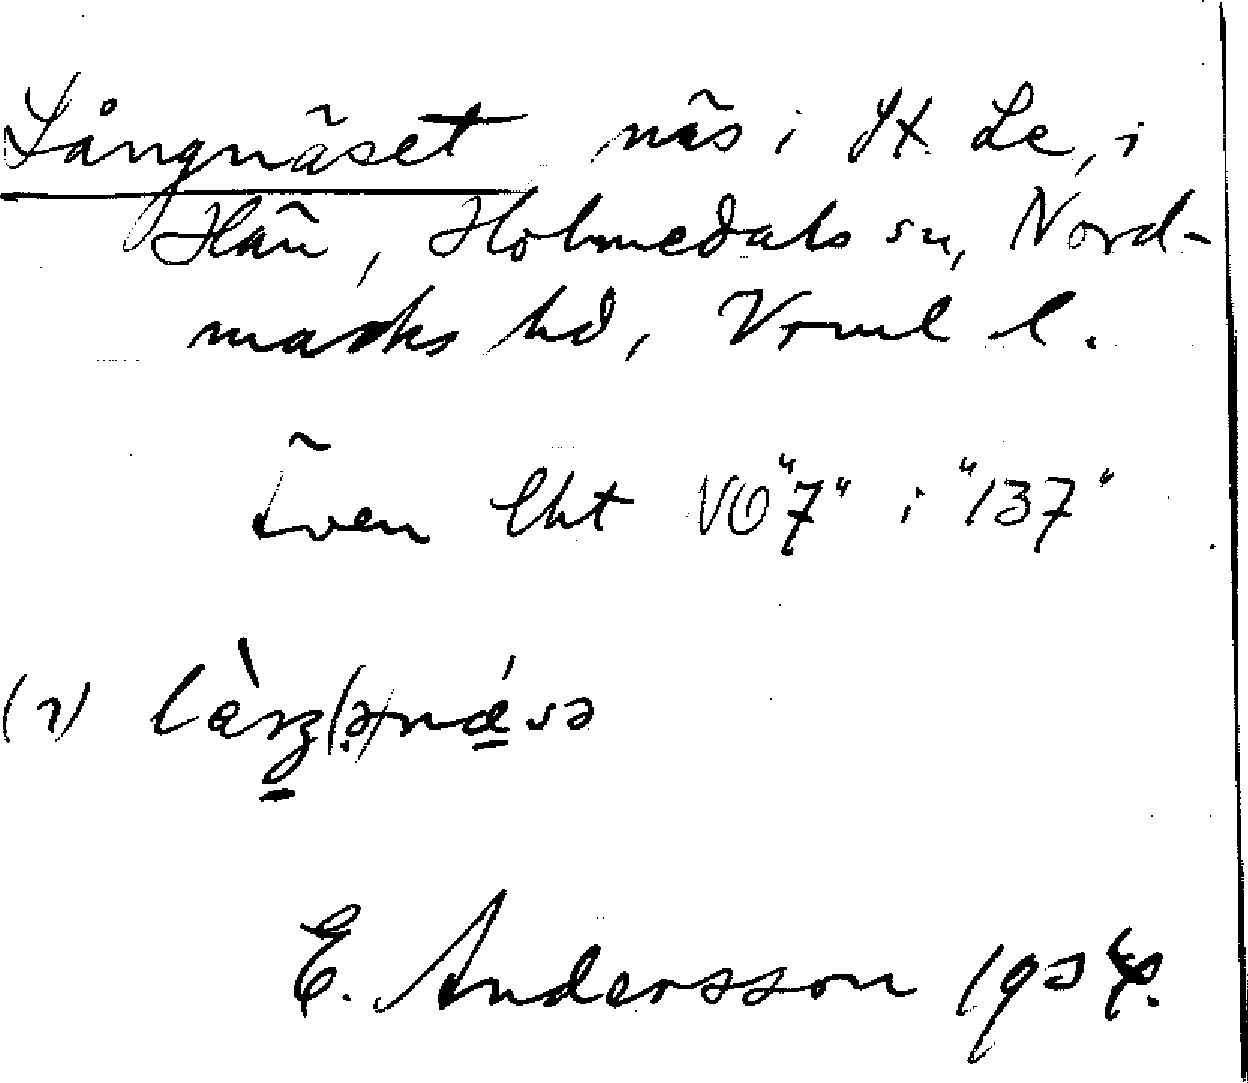 Långnäset näs i St. Le, i
Hän, Holmedals sn, Nord-
marks hd, Vrml l.
Även lht VO "7" i "137"
(1)
E. Andersson 19